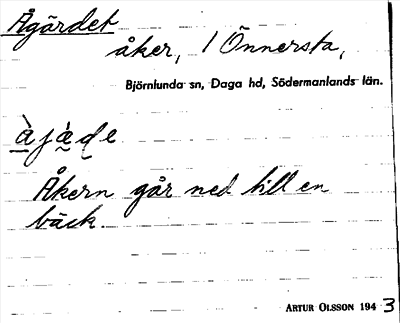 Ågärdet
åker, 1 Önnersta,
Björnlunda sn, Daga hd, Södermanlands län.
àjä̀de
Åkern går ned till en
bäck.
ARTUR OLSSON 1943